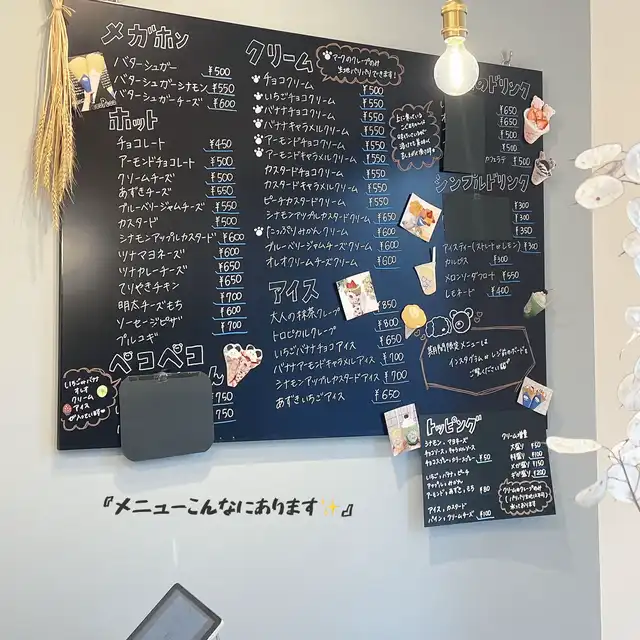 メガホン
バターシュガー ¥500
バターシュガーシナモン ¥550
バターシュガーチーズ ¥600
ホット
チョコレート ¥450
アーモンドチョコレート ¥500
クリームチーズ ¥500
あずきチーズ ¥550
ブルーベリージャムチーズ ¥550
カスタード ¥500
シナモンアップルカスタード ¥600
ツナマヨネーズ ¥600
ツナカレーチーズ ¥650
てりやきチキン ¥650
明太チーズもち ¥700
ソーセージピザ ¥600
プルコギ ¥700
ペコペコ
いちごバナナ
クリーム
アイス
が入っています
750
750
クリーム
マークのクレープのみ
生地パリパリできます!
チョコクリーム ¥500
いちごチョコクリーム ¥550
バナナチョコクリーム ¥550
バナナキャラメルクリーム ¥550
アーモンドチョコクリーム ¥550
アーモンドキャラメルクリーム ¥550
カスタードチョコクリーム ¥550
カスタードキャラメルクリーム ¥550
ピーチカスタードクリーム ¥550
シナモンアップルカスタードクリーム ¥650
たっぷりみかんクリーム ¥600
ブルーベリージャムチーズクリーム ¥600
オレオクリームチーズクリーム ¥600
アイス
大人の抹茶クレープ ¥850
トロピカルクレープ ¥800
いちごバナナチョコアイス ¥650
バナナアーモンドキャラメルアイス ¥700
シナモンアップルカスタードアイス ¥700
あずきいちごアイス ¥650
のドリンク
¥650
¥650
¥500
¥500
カフェラテ ¥500
シンプルドリンク
¥300
¥300
¥350
アイスティー(ストレート or レモン) ¥300
カルピス ¥300
メロンソーダフロート ¥550
レモネード ¥400
期間限定メニューは
インスタグラム or レジ前のボードを
ご覧ください
トッピング
シナモン、マヨネーズ
チョコソース、キャラメルソース
チョコスプレー、カラースプレー ¥50
いちご、バナナ、ピーチ
アーモンド、あずき、もち ¥80
アイス、カスタード
パイン、クリームチーズ ¥100
クリーム増量
大盛り ¥50
特盛り ¥100
メガ盛り ¥150
ギガ盛り ¥200
『メニューこんなにあります✨』